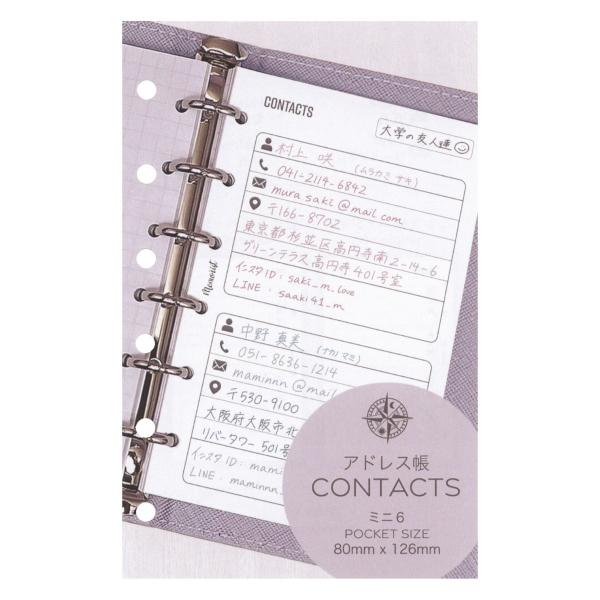 CONTACTS
大学の友人達
村上 咲 (ムラカミ サキ)
041-2114-6842
mura saki@mail.com
〒166-8702
東京都杉並区高円寺南2-14-6
グリーンテラス高円寺401号室
インスタID: saki_m_love
LINE: saaki41_m
Memorist
中野 真美 (ナカノ マミ)
051-8636-1214
maminnn@mail
〒530-9100
大阪府大阪市北
リバータワー 501号
インスタID: mami
LINE: maminnn_
アドレス帳
CONTACTS
ミニ6
POCKET SIZE
80mm x 126mm